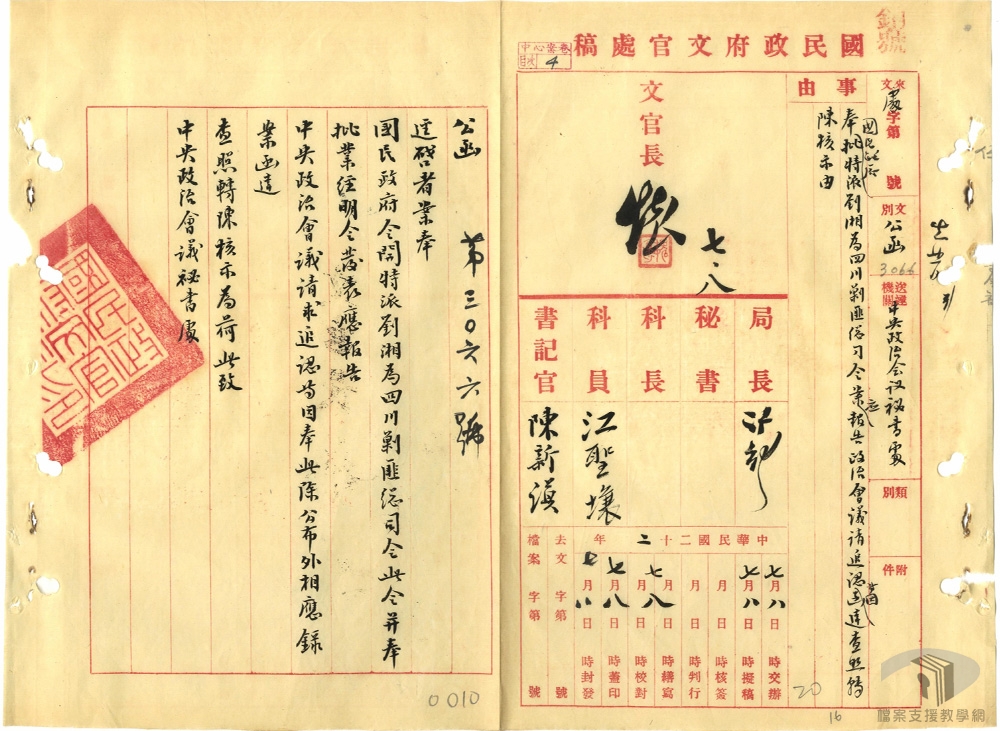 國民政府文官處稿
卷當心中
目次 4
銷號
來文
處字第 號
文別
公函
3066
送達機關
中央政治会议秘書處
類別
附件
事由
國民政府
奉批特派劉湘為四川剿匪总司令業
應
報告政治會議請追認函達查照轉
陳核示由
文官長
七、八
局長
秘書
科長
科員
江聖壤
書記官
陳新滇
中華民國二十二年
七月八日 時交辦
七月八日 時擬稿
月 日 時核簽
月 日 時判行
月 日 時繕寫
七月八日 時校對
七月八日 時蓋印
七月八日 時封發
去文 字第 號
檔案 字第 號
20
16
公函 第三〇六六號
逕啓者業奉
國民政府令開特派劉湘為四川剿匪总司令此令并奉
批業經明令發表應報告
中央政治會議請求追認等因奉此除公布外相應錄
案函達
查照轉陳核示為荷此致
中央政治會議秘書處
0010
檔案支援教學網